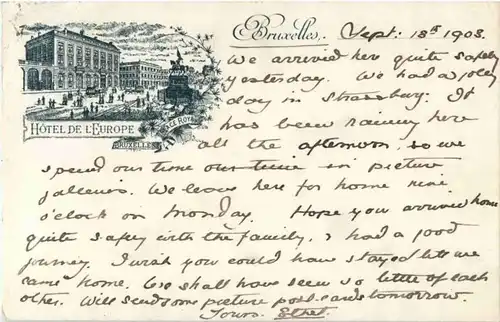 Bruxelles, Sept: 13th 1903.
We arrived here quite safely
yesterday. We had a jolly
day in Strassburg: It
has been rainy here
all the afternoon, so we
HÔTEL DE L'EUROPE
PLACE ROYALE
BRUXELLES
spend our time our time in picture
galleries. We leave here for home nine
o'clock on Monday. Hope you arrived home
quite safely with the family, & had a good
journey. I wish you could have stayed till we
came home. We shall have seen so little of each
other. Will send some picture post-cards tomorrow.
Yours. Ethel.